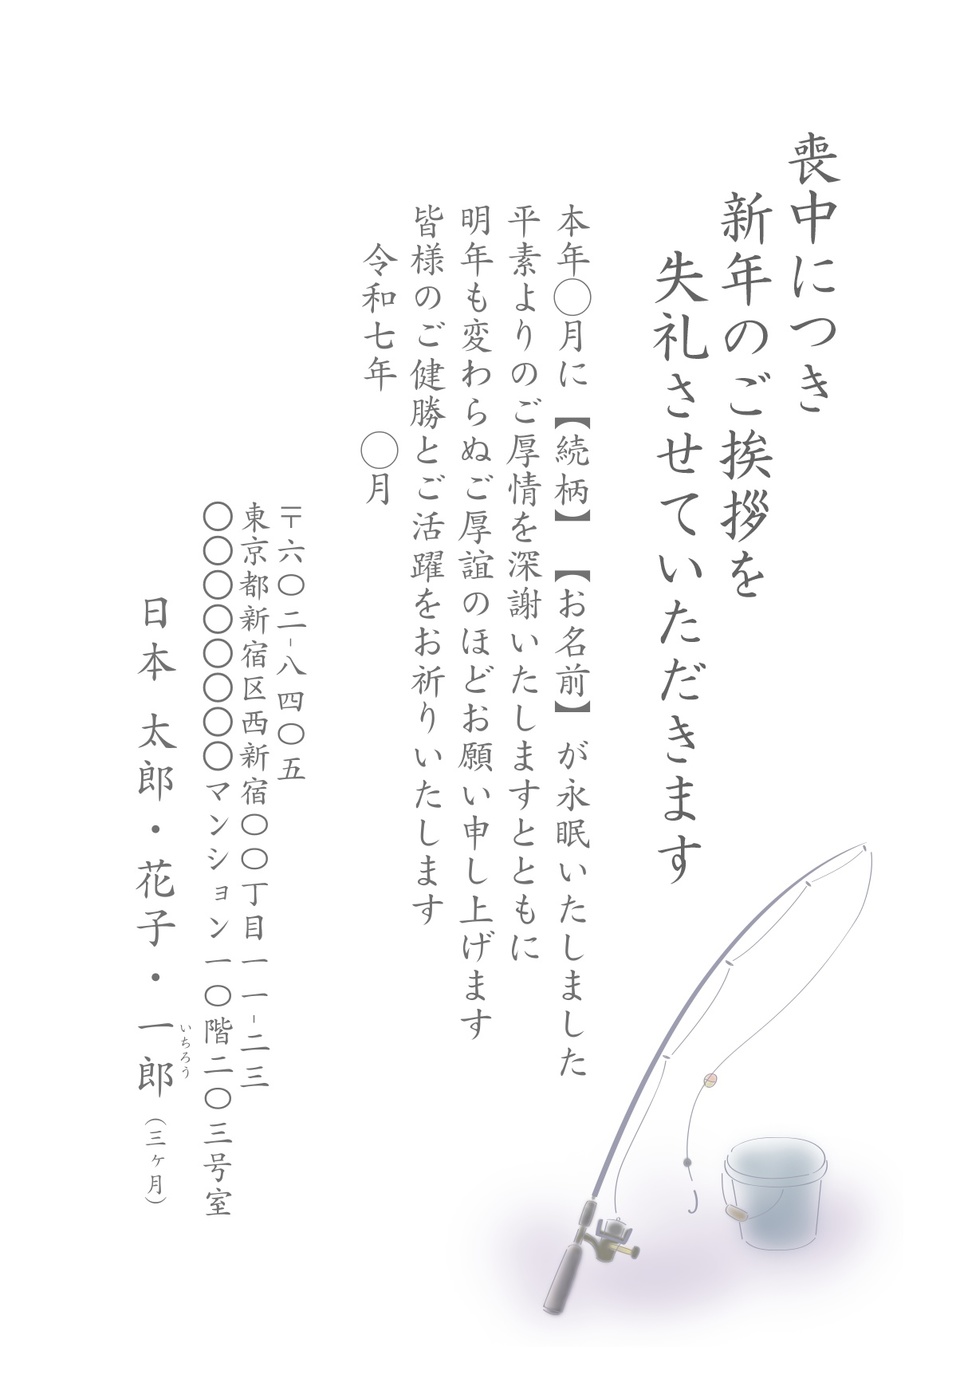 喪中につき
新年のご挨拶を
失礼させていただきます
本年◯月に【続柄】【お名前】が永眠いたしました
平素よりのご厚情を深謝いたしますとともに
明年も変わらぬご厚誼のほどお願い申し上げます
皆様のご健勝とご活躍をお祈りいたします
令和七年　◯月
〒六〇二-八四〇五
東京都新宿区西新宿〇〇丁目一一-二三
〇〇〇〇〇〇〇〇マンション一〇階二〇三号室
いちろう
日本　太郎・花子・一郎（三ヶ月）